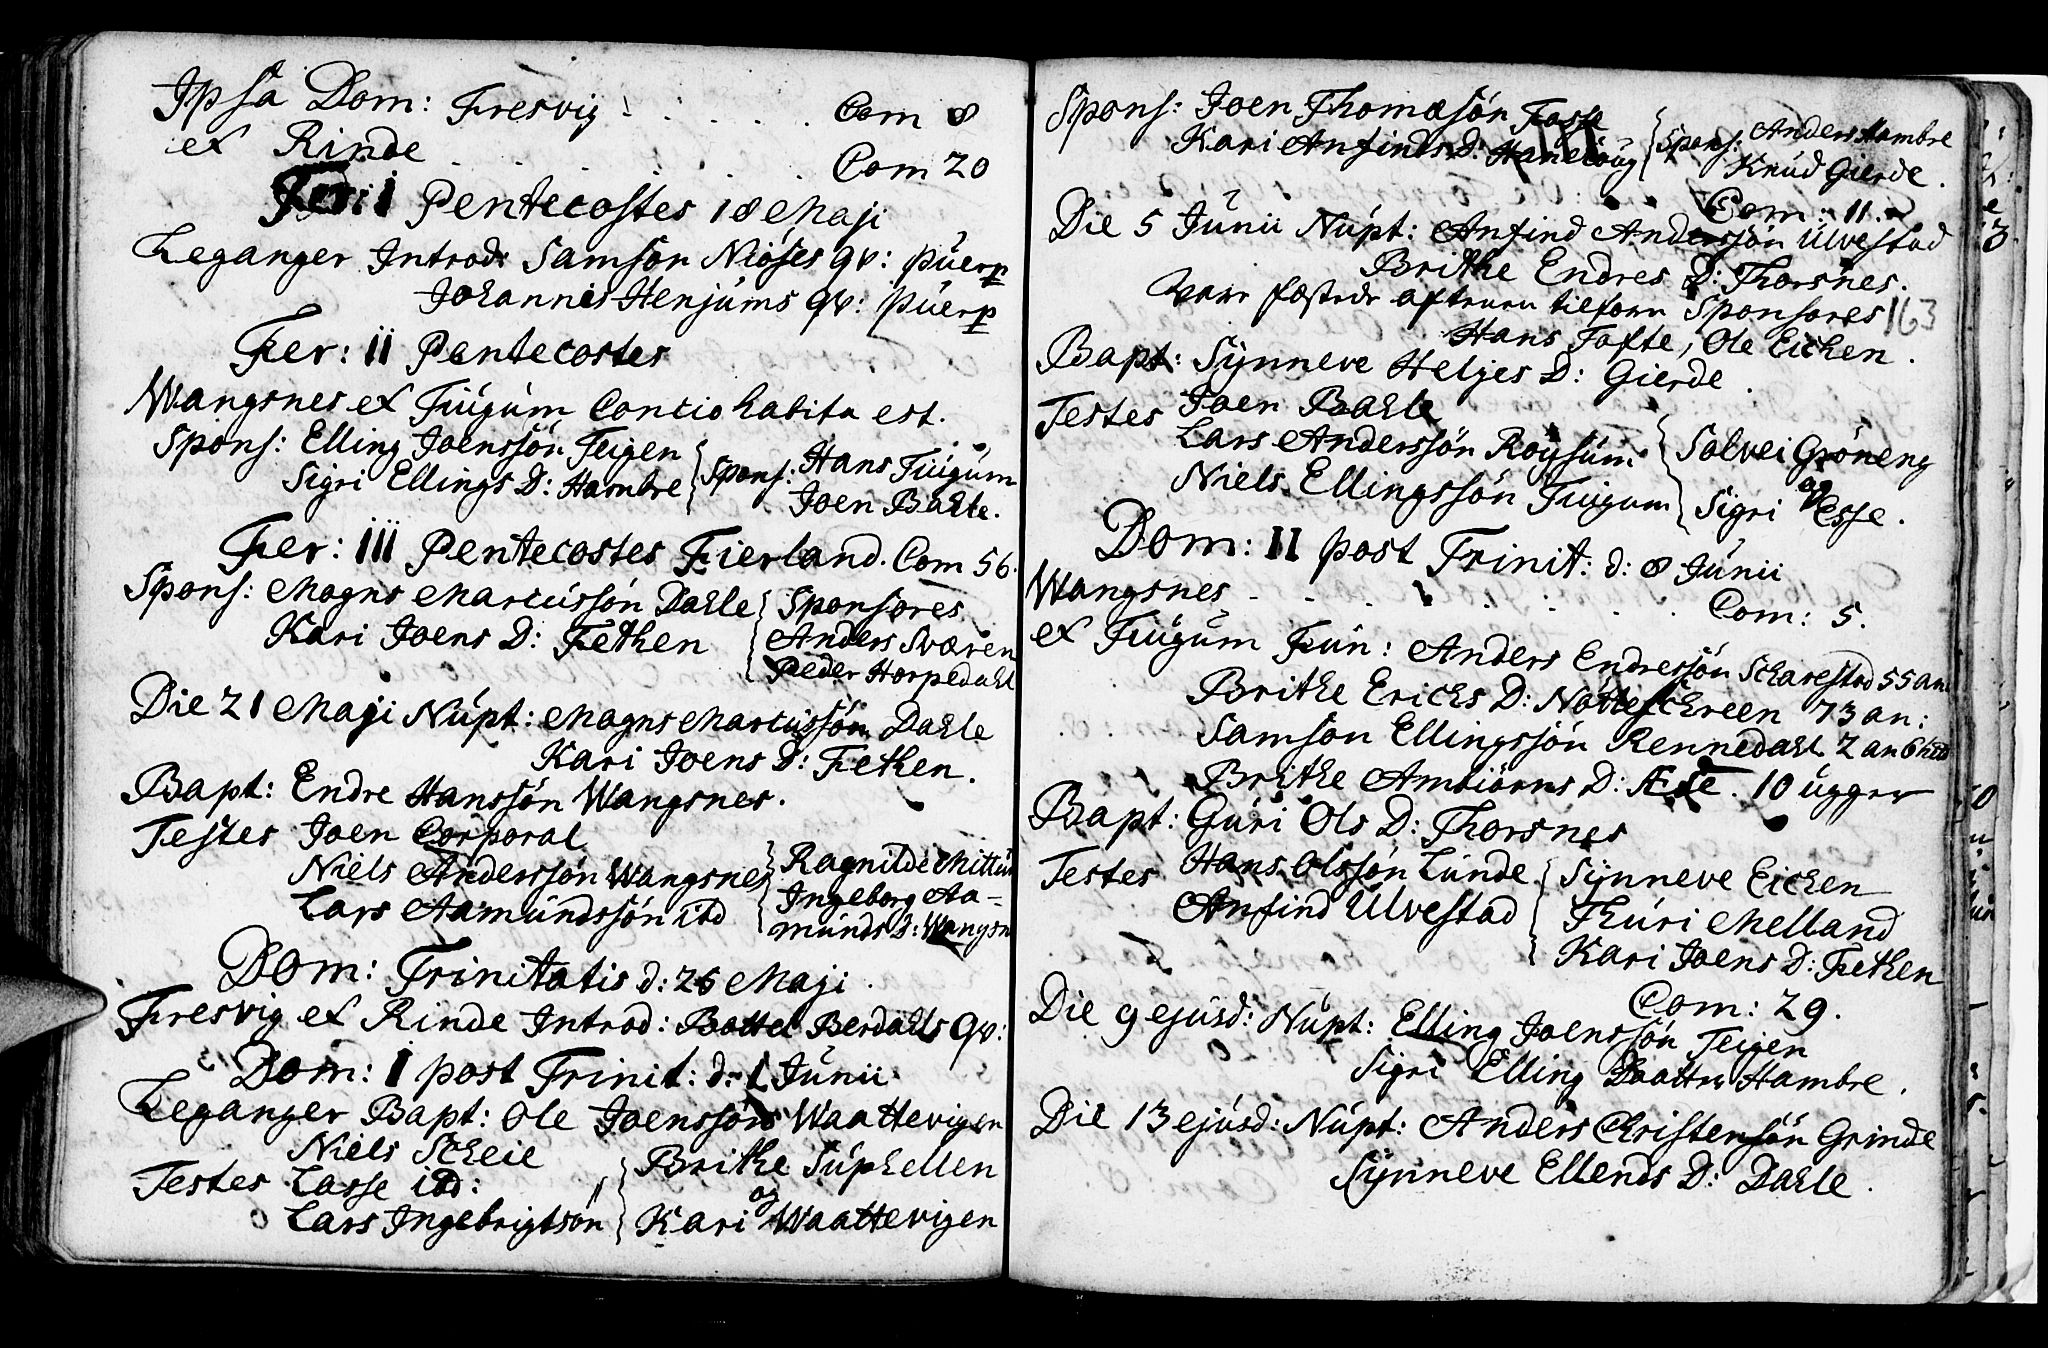 Ipsa Dom: Fresvig . . . . . Com 8
et Rinde . . . . . . Com 20
Feri: I Pentecostes 18 Maji
Leganger Introd: Samson Niøses qv: puerp
Johannis Henjums qv: puerp
Fer: II Pentecostes
Wangsnes et Fuigum Concio habita est.
Spons: Elling Joenssøn Teigen
Sigri Ellings D: Hambre
Spons: Hans Fuigum
Joen Bahle.
Fer: III Pentecostes Fierland. Com 56.
Spons: Magns Marcussøn Dahle
Kari Joens D: Fethen
Sponsores
Anders Sværen
Peder Horpedahl
Die 21 Maji Nupt: Magns Marcussøn Dahle
Kari Joens D: Fethen.
Bapt: Endre Hanssøn Wangsnes.
Testes Joen Corporal
Niels Anderssøn Wangsnes
Lars Aamundssøn itd
Ragnilde Mittun
Ingeborg Aa-
munds D: Wangsn
Dom: Trinitatis d: 26 Maji.
Fresvig et Rinde Introd: Bottel Berdahls qv:
Dom: I post Trinit: d: 1 Junii
Leganger Bapt: Ole Joenssøn Waattevigen
Niels Scheie
Testes Lasse itd:
Lars Ingebrigtsøn
Brithe Suphellen
og
Kari Waattevigen
Spons: Joen Thomæsøn Fosse
Kari Anfinds D: Hanehoug
Spons: Anders Hambre
Knud Gierde.
Com: 11.
Die 5 Junii Nupt: Anfind Anderssøn Ulvestad
Brithe Endres D: Thorsnes.
vare fæstede aftenen tilforn Sponsores
163
Hans Tofte, Ole Eichen.
Bapt: Synneve Heljes D: Gierde.
Testes Joen Bahle
Lars Anderssøn Roysum
Niels Ellingssøn Fuigum
Solvei Grøneng
og
Sigri Esse.
Dom: II post Trinit: d: 8 Junii
Wangsnes . . . . . . . Com: 5.
et Fuigum Fun: Anders Endressøn Scharestad 55 an
Brithe Erichs D: Notteschreen 73 an:
Samson Ellingssøn Rennedahl 2 an 6
Brithe Ambiørns D: Æse. 10 ugger
Bapt: Guri Ols D: Thorsnes
Testes Hans Olssøn Lunde
Anfind Ulvestad
Synneve Eichen
Thuri Melland
Kari Joens D: Fethen
Com: 29.
Die 9 ejusd: Nupt: Elling Joenssøn Teigen
Sigri Elling Daatter Hambre.
Die 13 ejusd: Nupt: Anders Christensøn Grinde
Synneve Ellends D: Dahle.